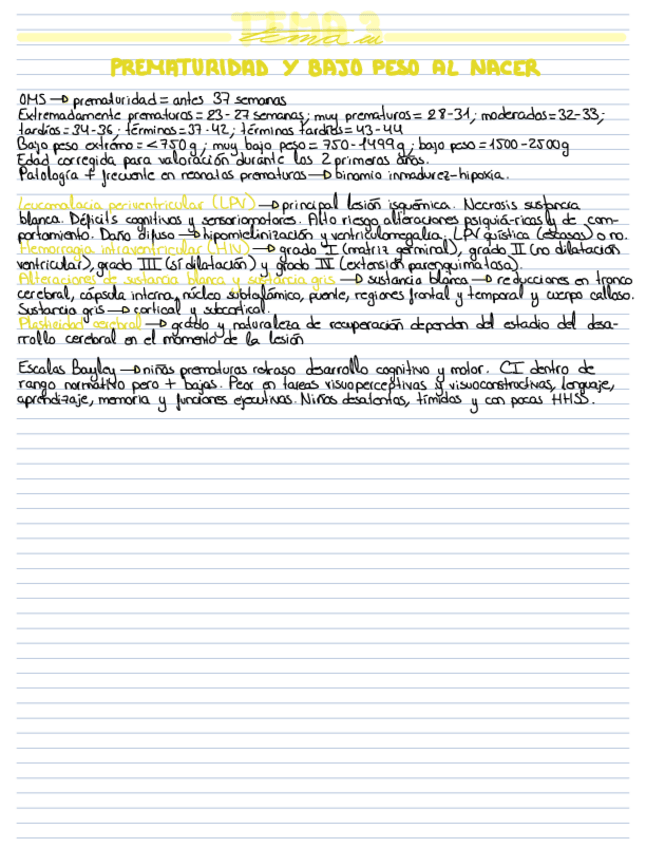 TEMA 2
tema
PREMATURIDAD Y BAJO PESO AL NACER
OMS → prematuridad = antes 37 semanas
Extremadamente prematuros = 23-27 semanas; muy prematuros = 28-31; moderados = 32-33;
tardíos = 34-36; términos = 37-42; términos tardíos = 43-44
Bajo peso extremo = <750g; muy bajo peso = 750-1499g; bajo peso = 1500-2500g
Edad corregida para valoración durante los 2 primeros años.
Patología + frecuente en neonatos prematuros → binomio inmadurez-hipoxia.
Leucomalacia periventricular (LPV) → principal lesión isquémica. Necrosis sustancia
blanca. Déficits cognitivos y sensoriomotores. Alto riesgo alteraciones psiquiá-ricas y de com-
portamiento. Daño difuso → hipomielinización y ventriculomegalia. LPV quística (escasos) o no.
Hemorragia intraventricular (HIV) → grado I (matriz germinal), grado II (no dilatación
ventricular), grado III (sí dilatación) y grado IV (extensión parenquimatosa).
Alteraciones de sustancia blanca y sustancia gris → sustancia blanca → reducciones en tronco
cerebral, cápsula interna, núcleo subtalámico, puente, regiones frontal y temporal y cuerpo calloso.
Sustancia gris → cortical y subcortical.
Plasticidad cerebral → grado y naturaleza de recuperación dependen del estadio del desa-
rrollo cerebral en el momento de la lesión
Escalas Bayley → niños prematuros retraso desarrollo cognitivo y motor. CI dentro de
rango normativo pero + bajas. Peor en tareas visuoperceptivas y visuoconstructivas, lenguaje,
aprendizaje, memoria y funciones ejecutivas. Niños desatentos, tímidos y con pocas HHSS.